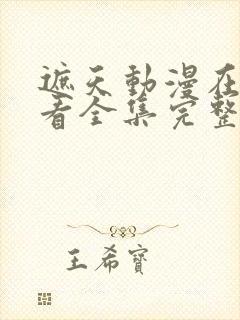 遮天動漫在
看全集完整
王希寶